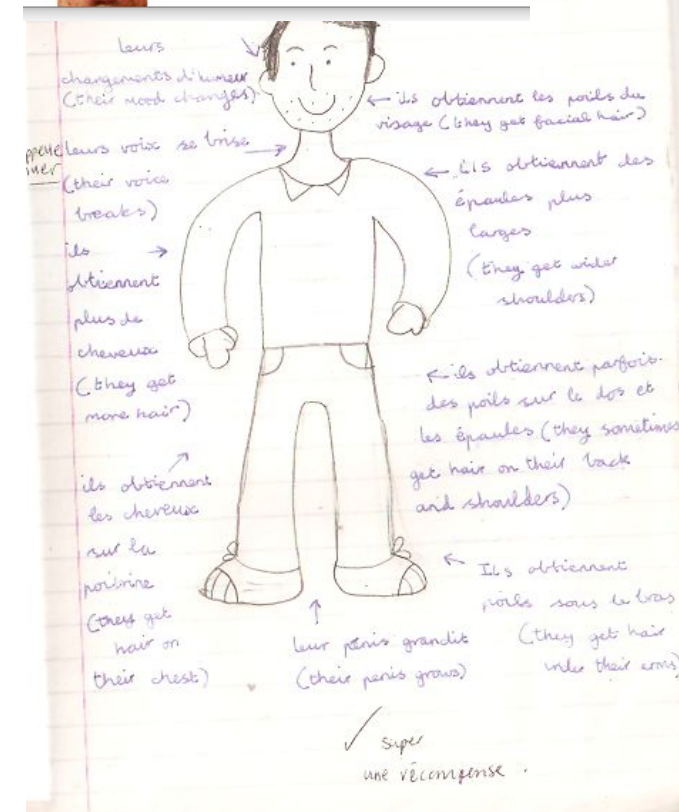 leurs
changements d'humeur
(their mood changes)
leurs voix se brise
(their voice
breaks)
ils
obtiennent
plus de
cheveux
(they get
more hair)
ils obtiennent
les cheveux
sur la
poitrine
(they get
hair on
their chest)
← ils obtiennent les poils du
visage (they get facial hair)
← ils obtiennent des
épaules plus
larges
(they get wider
shoulders)
← ils obtiennent parfois.
des poils sur le dos et
les épaules (they sometimes
get hair on their back
and shoulders)
Ils obtiennent
poils sous le bras
(they get hair
under their arms)
leur pénis grandit
(their penis grows)
✓ super
une récompense.